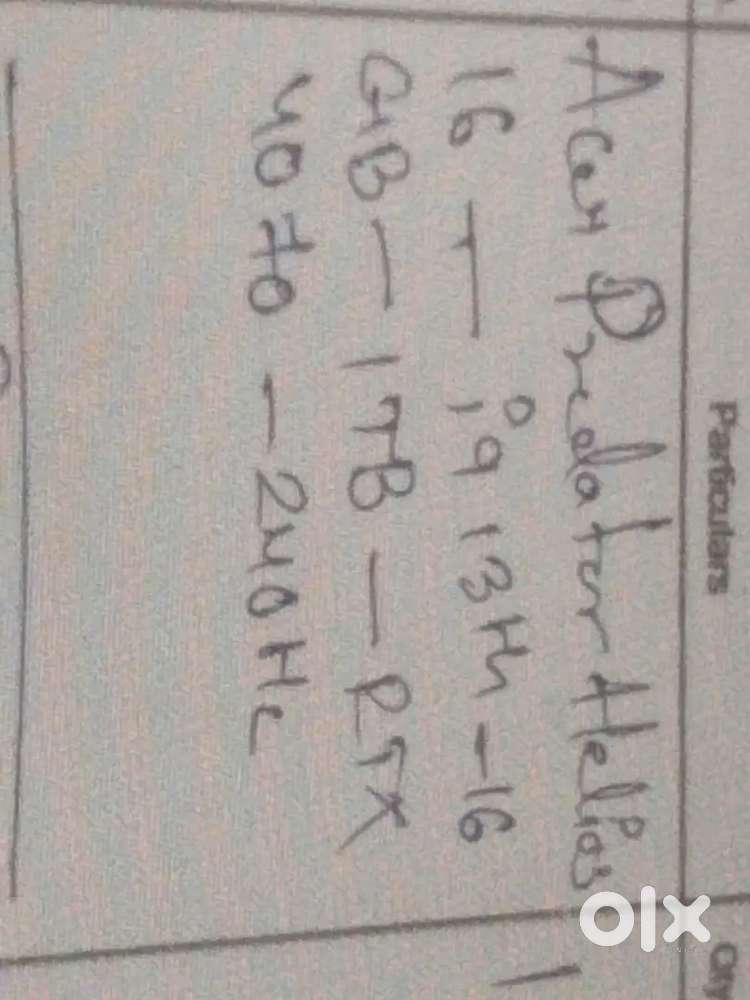 Particulars
Qty
Acer Predator Helios
16 — i9 13th - 16
GB — 1TB — RTX
4070 - 240Hz
1
olx